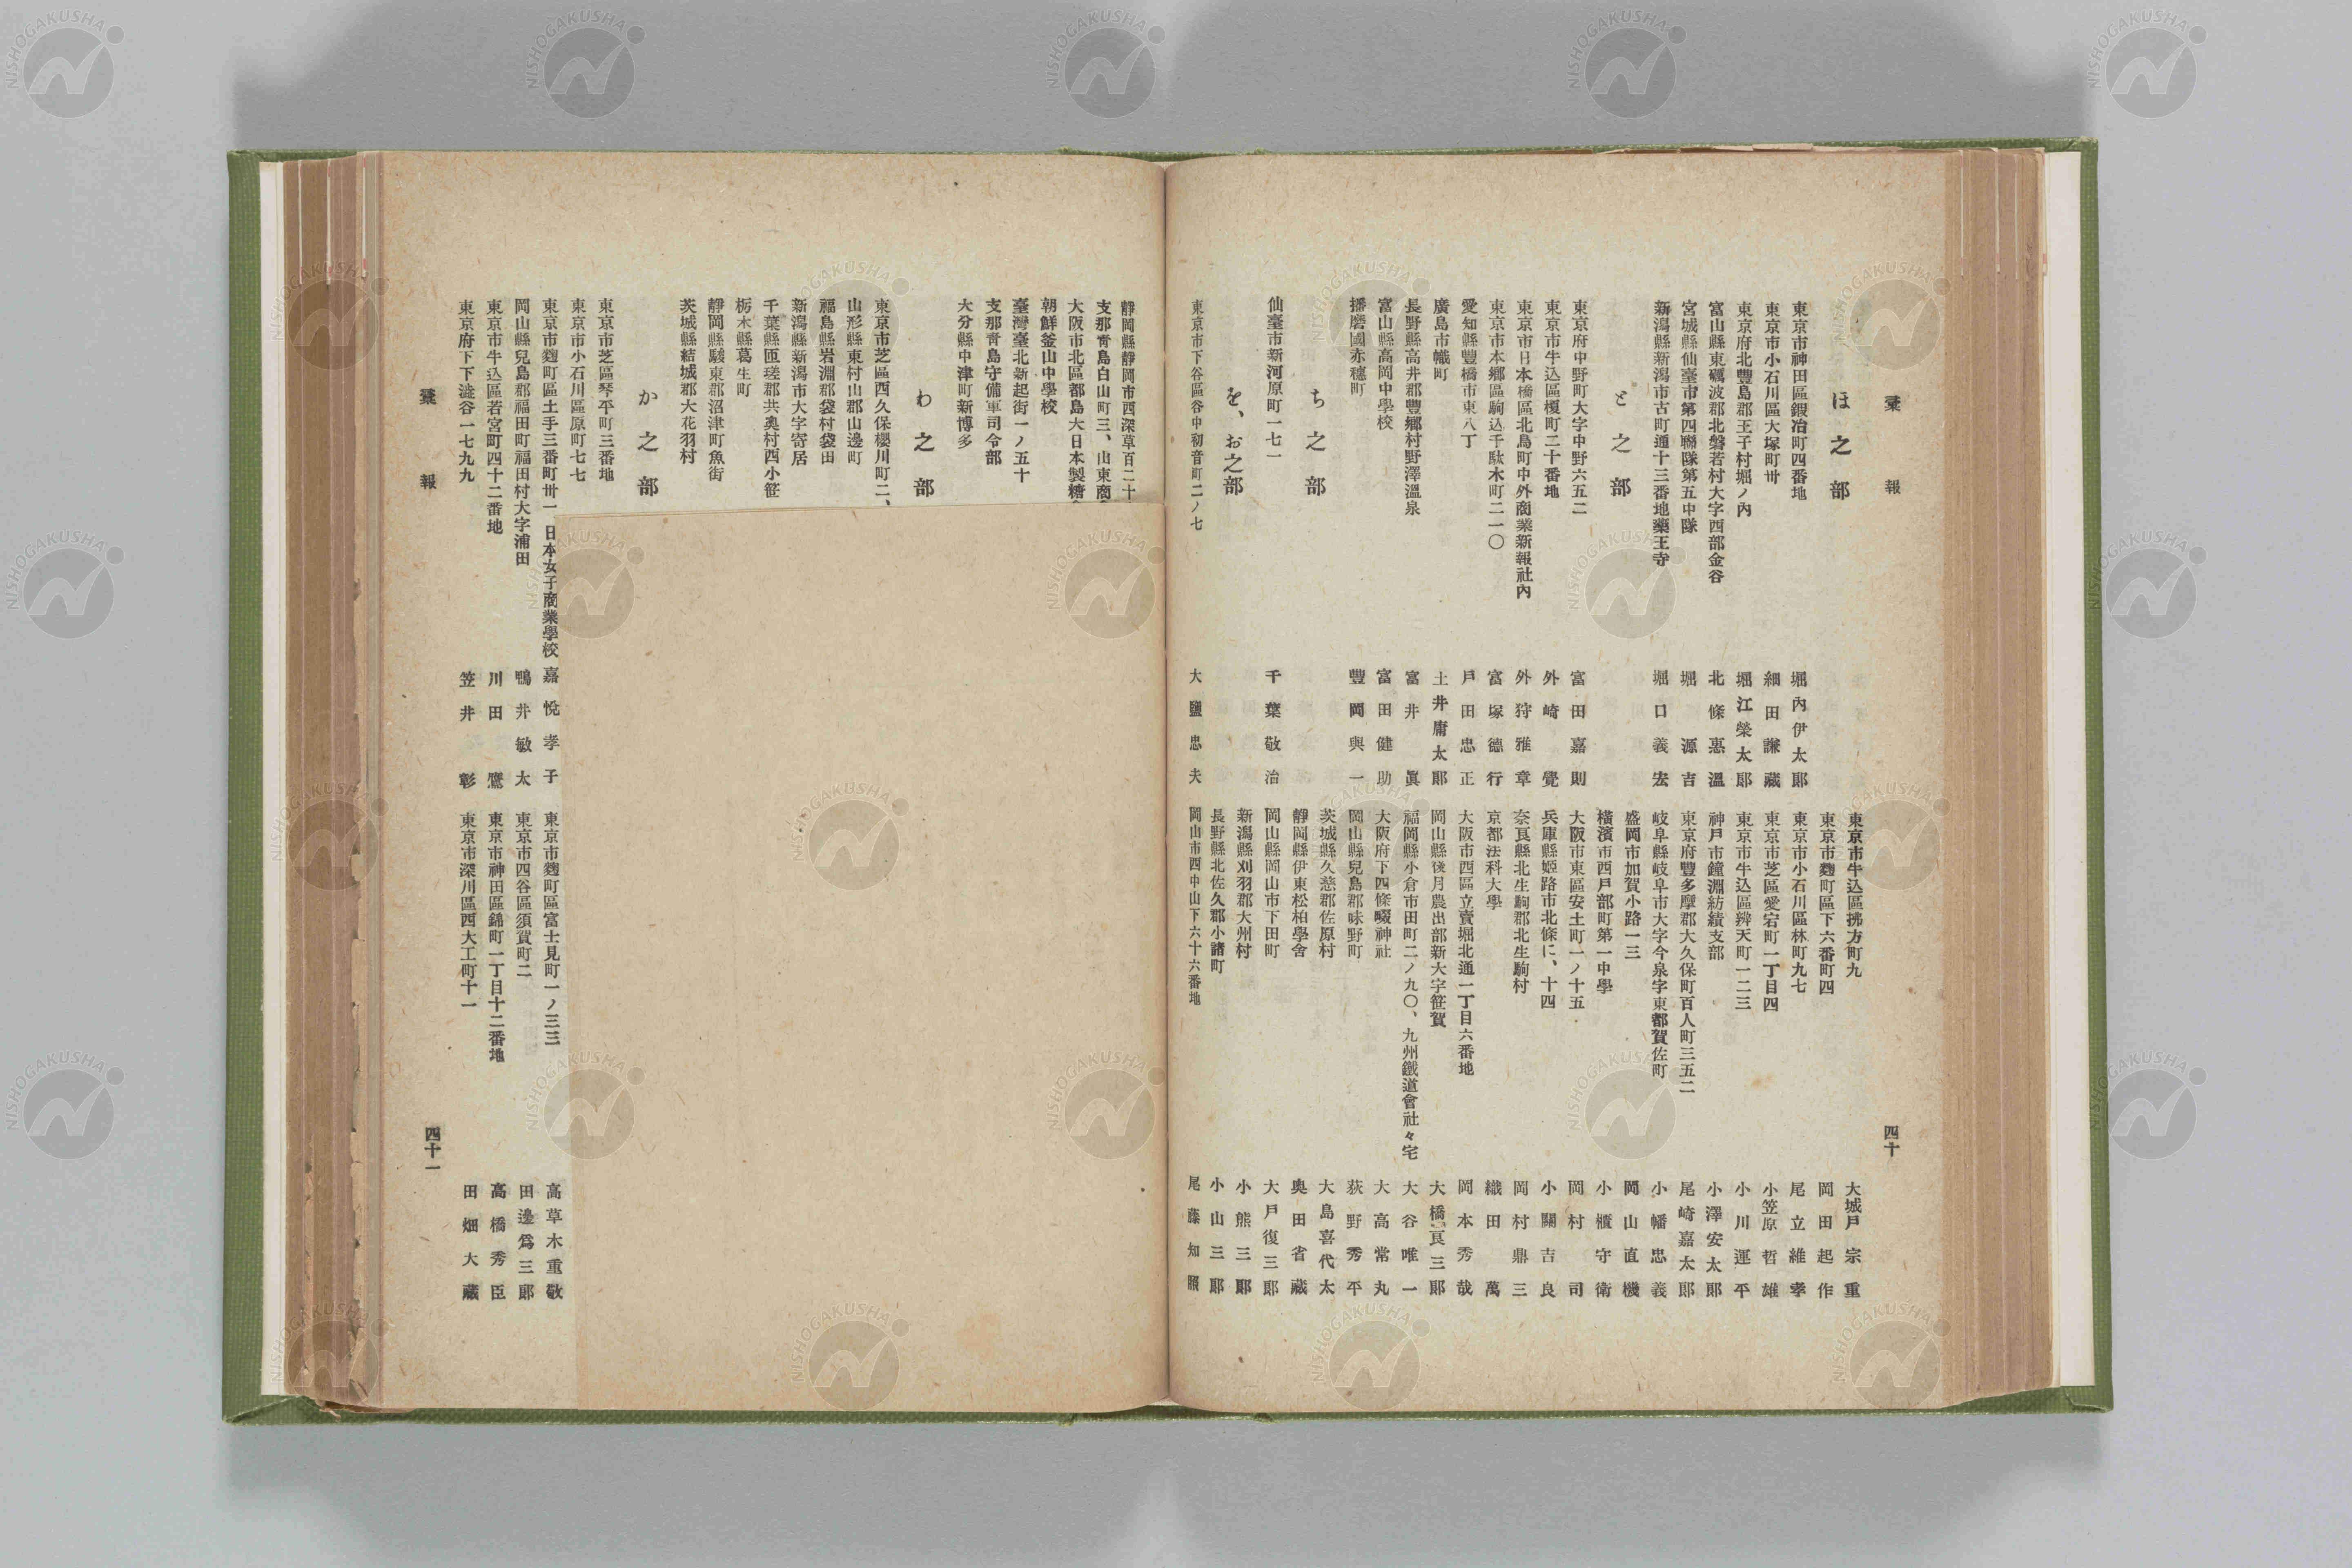 彙報
ほ之部
東京市神田區鍜冶町四番地 堀內伊太郎
東京市小石川區大塚町卅 細田謙藏
東京府北豐島郡王子村堀ノ內 堀江榮太郎
富山縣東礪波郡北磐若村大字西部金谷 北條惠溫
宮城縣仙臺市第四聯隊第五中隊 堀源吉
新潟縣新潟市古町通十三番地藥王寺 堀口義宏
と之部
東京府中野町大字中野六五二 富田嘉則
東京市牛込區榎町二十番地 外崎覺
東京市日本橋區北島町中外商業新報社內 外狩雅章
東京市本鄉區駒込千駄木町二一〇 富塚德行
愛知縣豐橋市東八丁 戶田忠正
廣島市幟町 土井庸太郎
長野縣高井郡豐鄉村野澤溫泉 富井眞
富山縣高岡中學校 富田健助
播磨國赤穗町 豐岡與一
ち之部
仙臺市新河原町一七一 千葉敬治
を、お之部
東京市下谷區谷中初音町二ノ七 大鹽忠夫
東京市牛込區拂方町九 大城戶宗重
東京市麴町區下六番町四 岡田起作
東京市小石川區林町九七 尾立維孝
東京市芝區愛宕町一丁目四 小笠原哲雄
東京市牛込區辨天町一二三 小川運平
神戶市鐘淵紡績支部 小澤安太郎
東京府豐多摩郡大久保町百人町三五二 尾崎嘉太郎
岐阜縣岐阜市大字今泉字東都賀佐町 小幡忠義
盛岡市加賀小路一三 岡山直機
橫濱市西戶部町第一中學 小櫃守衛
大阪市東區安土町一ノ十五 岡村司
兵庫縣姬路市北條に、十四 小關吉良
奈良縣北生駒郡北生駒村 岡村鼎三
京都法科大學 織田萬
大阪市西區立賣堀北通一丁目六番地 岡本秀哉
岡山縣後月農出部新大字笹賀 大橋良三郎
福岡縣小倉市田町二ノ九〇、九州鐵道會社々宅 大谷唯一
大阪府下四條畷神社 大高常丸
岡山縣兒島郡味野町 荻野秀平
茨城縣久慈郡佐原村 大島喜代太
靜岡縣伊東松柏學舍 奧田省藏
岡山縣岡山市下田町 大戶復三郎
新潟縣刈羽郡大州村 小熊三郎
長野縣北佐久郡小諸町 小山三郎
岡山市西中山下六十六番地 尾藤知照
四十
靜岡縣靜岡市西深草百二十
支那靑島白山町三、山東商
大阪市北區都島大日本製糖
朝鮮釜山中學校
臺灣臺北新起街一ノ五十
支那靑島守備軍司令部
大分縣中津町新博多
わ之部
東京市芝區西久保櫻川町二、
山形縣東村山郡山邊町
福島縣岩淵郡袋村袋田
新潟縣新潟市大字寄居
千葉縣匝瑳郡共奧村西小笹
栃木縣葛生町
靜岡縣駿東郡沼津町魚街
茨城縣結城郡大花羽村
か之部
東京市芝區琴平町三番地
東京市小石川區原町七七
東京市麴町區土手三番町卅一 日本女子商業學校 嘉悅孝子
岡山縣兒島郡福田町福田村大字浦田 鴨井敏太
東京市牛込區若宮町四十二番地 川田鷹
東京府下下澁谷一七九九 笠井彰
東京市麴町區富士見町一ノ三三 高草木重敬
東京市四谷區須賀町二 田邊爲三郎
東京市神田區錦町一丁目十二番地 高橋秀臣
東京市深川區西大工町十一 田畑大藏
彙報
四十一